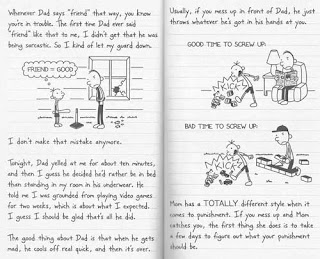 Whenever Dad says "friend" that way, you know
you're in trouble. The first time Dad ever said
"friend" like that to me, I didn't get that he was
being sarcastic. So I kind of let my guard down.
FRIEND = GOOD
I don't make that mistake anymore.
Tonight, Dad yelled at me for about ten minutes,
and then I guess he decided he'd rather be in bed
than standing in my room in his underwear. He
told me I was grounded from playing video games
for two weeks, which is about what I expected.
I guess I should be glad that's all he did.
The good thing about Dad is that when he gets
mad, he cools off real quick, and then it's over.
Usually, if you mess up in front of Dad, he just
throws whatever he's got in his hands at you.
GOOD TIME TO SCREW UP:
BAD TIME TO SCREW UP:
Mom has a TOTALLY different style when it
comes to punishment. If you mess up and Mom
catches you, the first thing she does is to take
a few days to figure out what your punishment
should be.